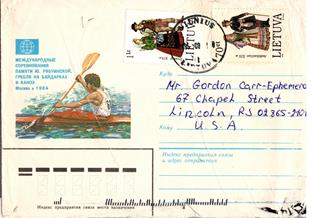 МЕЖДУНАРОДНЫЕ
СОРЕВНОВАНИЯ
ПАМЯТИ Ю. РЯБЧИНСКОЙ.
ГРЕБЛЯ НА БАЙДАРКАХ
И КАНОЭ
Москва 1984
LIETUVA
LIETUVA
VILNIUS
Куда
Mr. Gordon Carr-Ephemero
67 Chapel Street
Lincoln,
Кому
U.S.A.
Индекс предприятия связи
и адрес отправителя
Индекс предприятия связи места назначения